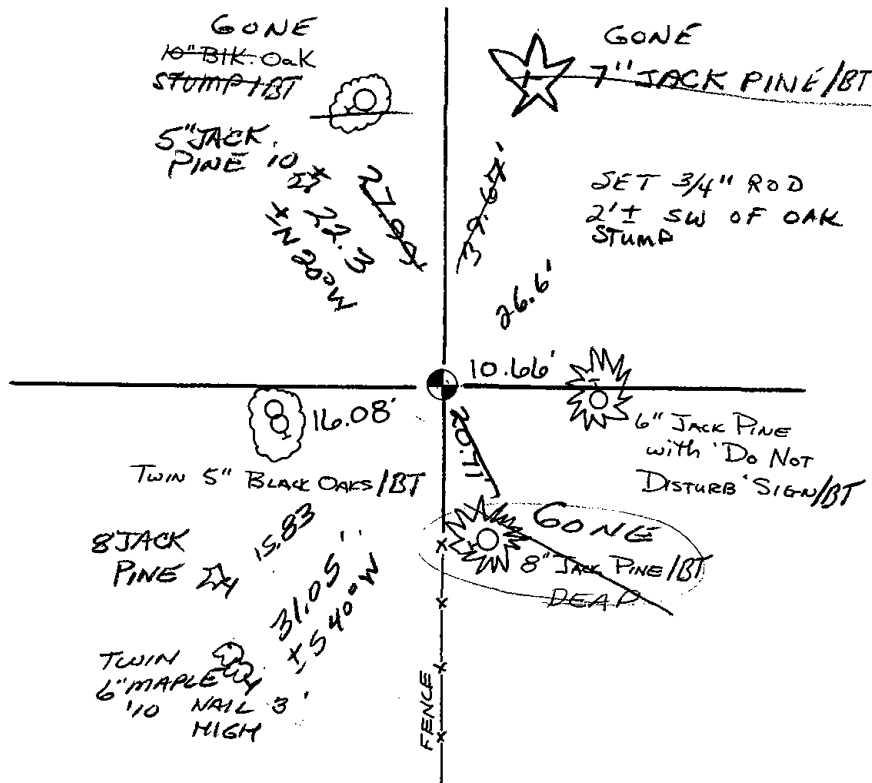 GONE
10" Blk. Oak
STUMP/BT
5" JACK
PINE 10
22.3
±N 20° W
27.99'
GONE
7" JACK PINE/BT
39.67'
SET 3/4" ROD
2'± SW OF OAK
STUMP
26.6'
10.66'
6" JACK PINE
with 'Do Not
DISTURB' SIGN/BT
16.08'
TWIN 5" BLACK OAKS/BT
20.71'
GONE
8" JACK PINE/BT
DEAD
8" JACK
PINE
15.83
31.05'
±S 40° W
TWIN
6" MAPLE
'10 NAIL 3'
HIGH
FENCE